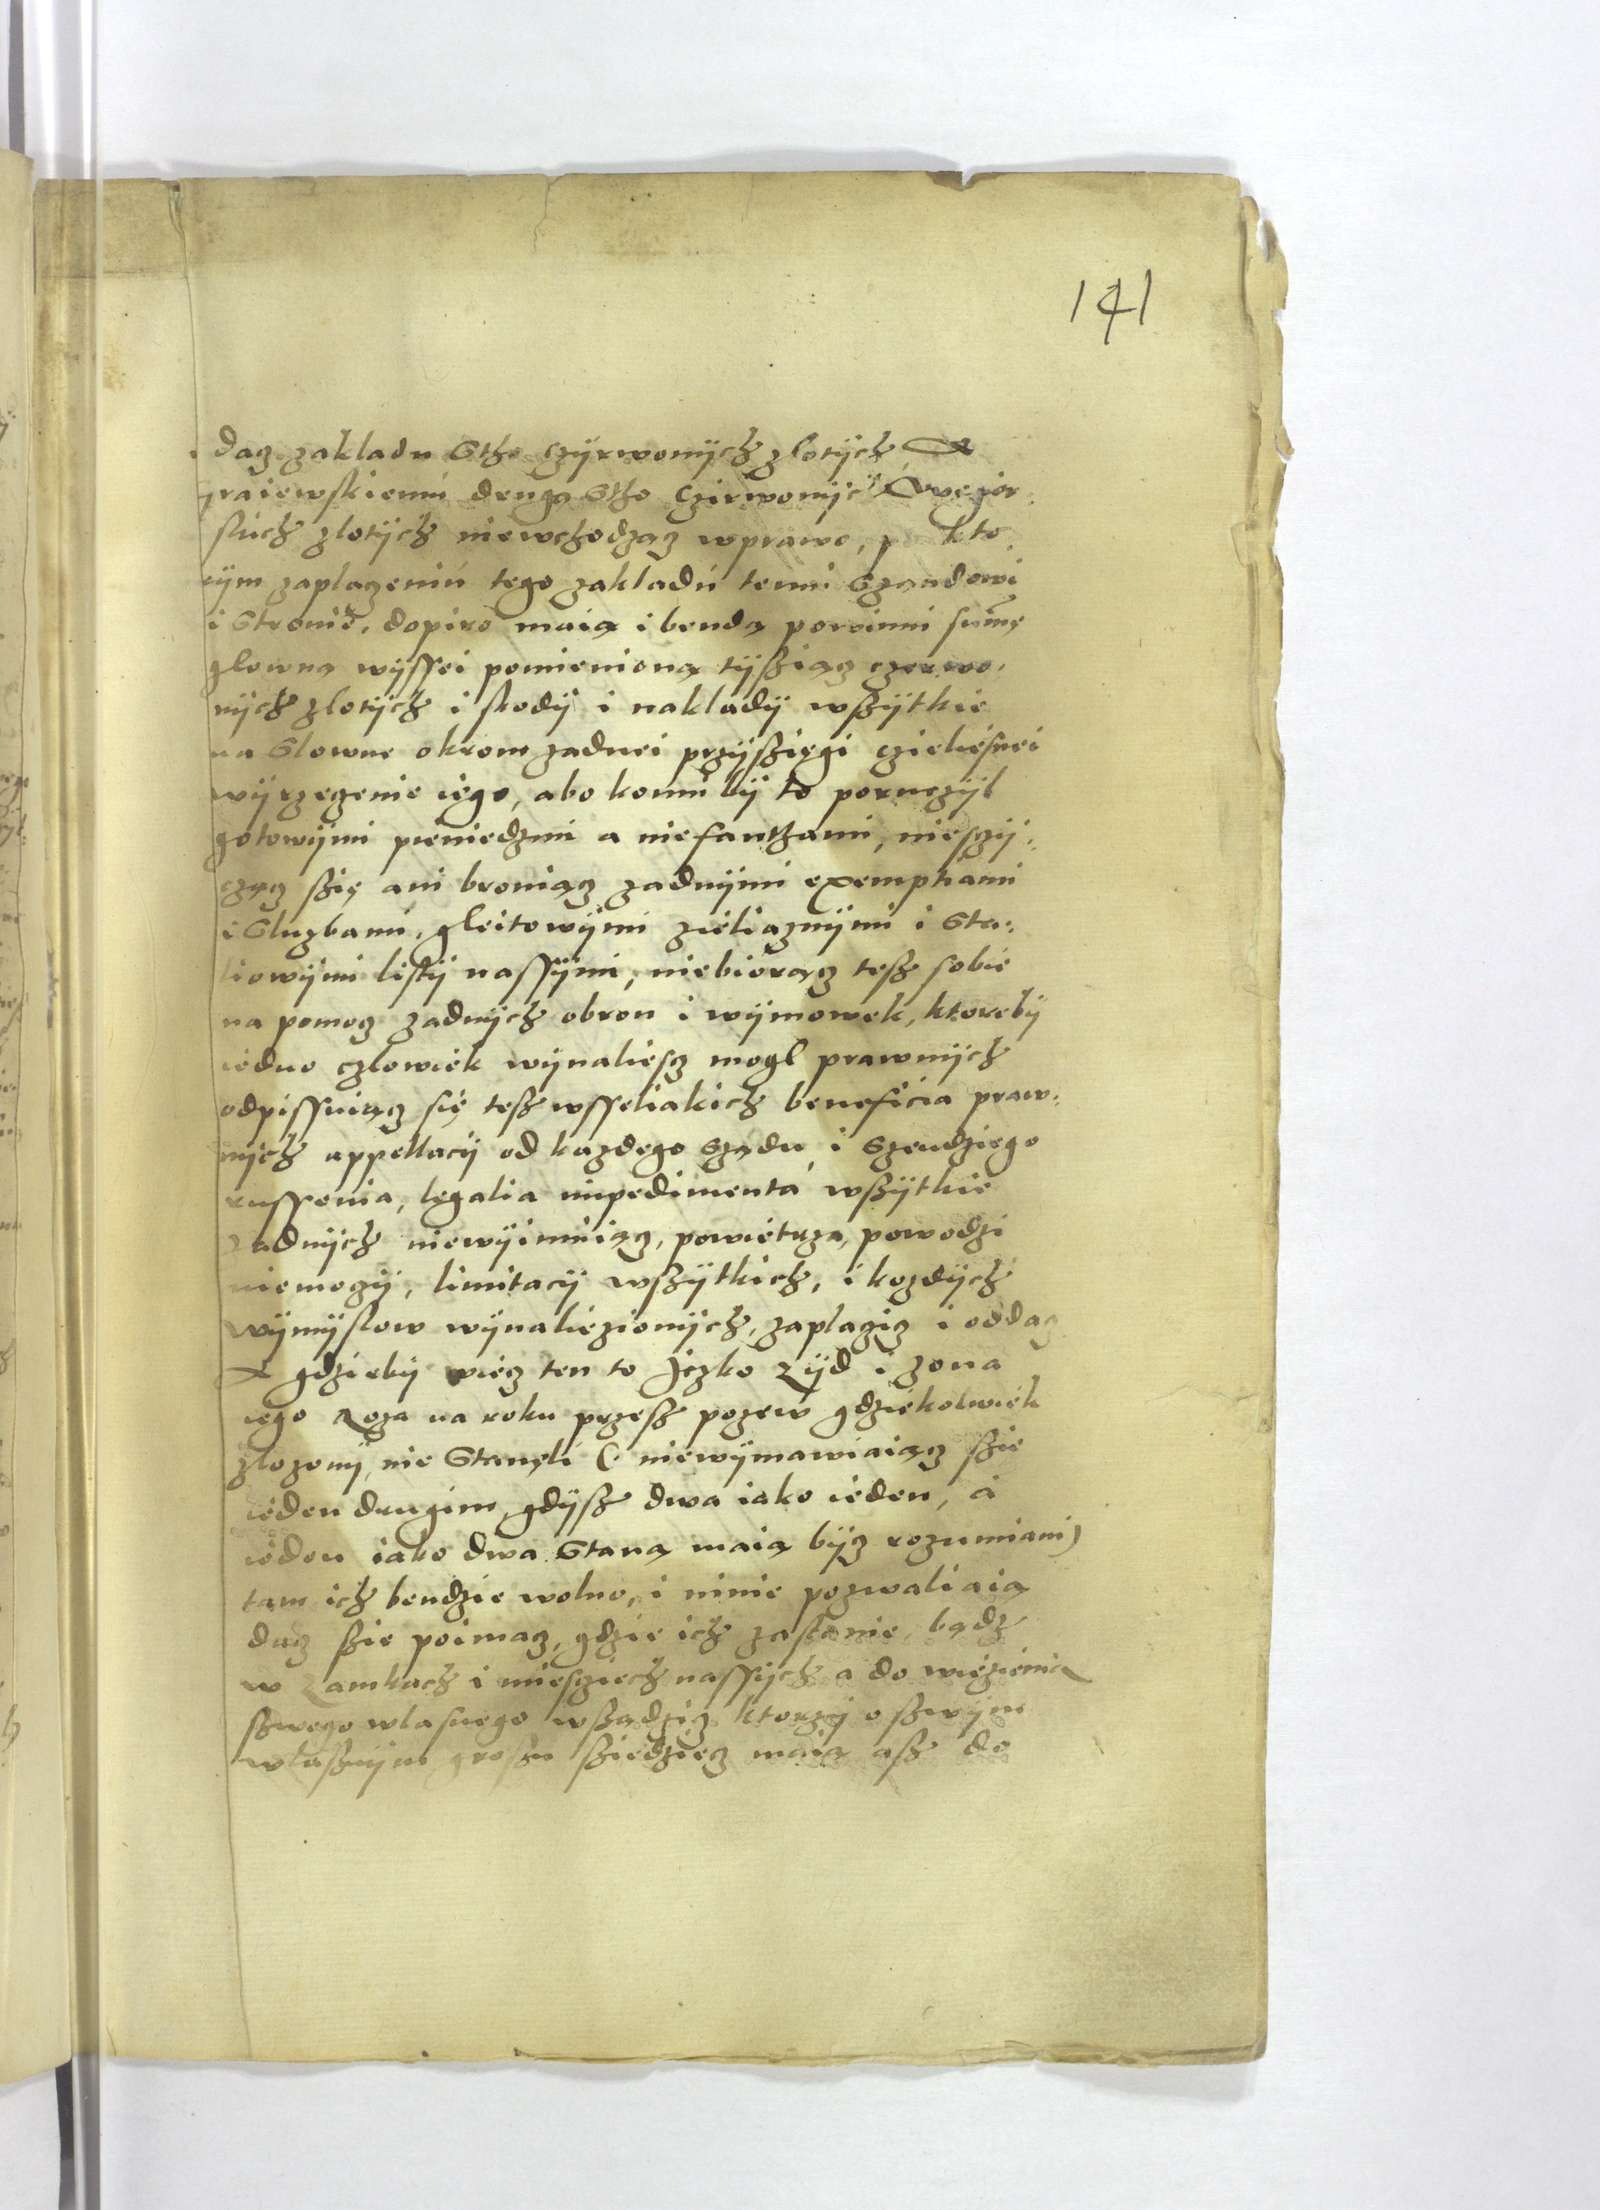 141
dacz zakladu Stho Czyrwonych zlotych, A
graiewskiemu drugą Stho Czirwonych Węgier
skich zlotych niewchodząncz wprawo, po kto
rym zaplaczeniu tego zakladu temu Sząndowi
i Stronie, dopiro maią i bendą powinni summę
glowną wyssei pomienioną tyssiącz czerwo,
nych zlotych i skody i naklady wszytkie
na Slowne okrom zadnei przyszięgi czieliesnei
wyrzeczenie iego, abo komu by to poruczyl
gotowymi pieniedzmi a niefanthami, niesczy:
czącz szię ani broniącz zadnymi exemptiami
i Sluzbami, gleitowymi zieliaznymi i Sta:
liowymi listy nassymi, niebioracz tesz sobie
na pomocz zadnych obron i wymowek, ktoreby
iedno czlowiek wynaliescz mogl prawnych
odpissuiącz się tesz wsseliakich beneficia praw:
nych appellacy od kazdego Sządu i Szendziego
russenia, legalia impedimenta wszytkie
zadnych niewyimuiącz, powietrza, powodzi
niemocy, limitacy wszytkich, i kozdych
wymyslow wynalieziomych, zaplaczicz i oddacz
A gdzieby więcz ten to Jczko Zyd i zona
iego Roza na roku przesz pozew gdziekolwiek
zlozony, nie Stanęli (niewymawiaiącz szie
ieden drugim, gdysz dwa iako ieden, a
ieden iako dwa Staną maią bycz rozumiani)
tam ich bendzie wolno, i ninie pozwaliaią
dacz szie poimacz, gdzie ich zastanie, bądz
w Zamkach i miescziech nassych a do więzienia
szwego wlasnego wsządzicz ktorzy o szwym
wlasznym groszu sziedziecz maią asz do